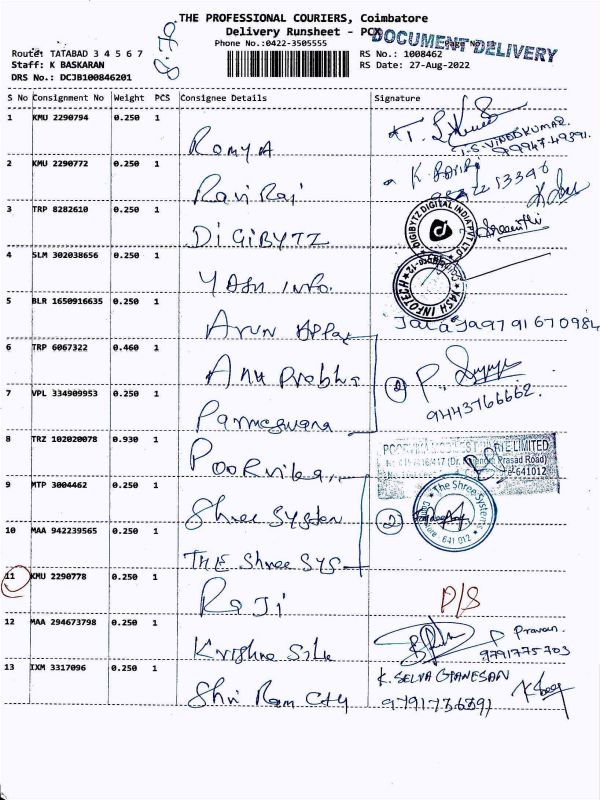 THE PROFESSIONAL COURIERS, Coimbatore
Delivery Runsheet - POD
DOCUMENT DELIVERY
Phone No.:0422-3505555
Route: TATABAD 3 4 5 6 7
RS No.: 1008462
Staff: K BASKARAN
RS Date: 27-Aug-2022
DRS No.: DCJB100846201
S No Consignment No Weight PCS Consignee Details Signature
1 KMU 2290794 0.250 1
Ramya
T.S. VINODKUMAR.
9994749391.
2 KMU 2290772 0.250 1
Ravi Raj
3 TRP 8282610 0.250 1
DiGiBYTZ
DIGIBYTZ DIGITAL INDIA PVT LTD
4 SLM 302038656 0.250 1
Yash info.
YASH INFOTECH
5 BLR 1650916635 0.250 1
Arun
9791670984
6 TRP 6067322 0.460 1
Anu Prabha
2
9443766662.
7 VPL 334909953 0.250 1
Parmeswara
8 TRZ 102020078 0.930 1
Poorvika
LIMITED
Prasad Road)
641012
9 MTP 3004462 0.250 1
Shree System
The Shree Systems
641 012
2
10 MAA 942239565 0.250 1
THE Shree SYS
11 KMU 2290778 0.250 1
Raji
D/S
12 MAA 294673798 0.250 1
Krishna Silk
P Pravan.
9791775703
13 IXM 3317096 0.250 1
Shri Ram City
K. SELVA GANESAN